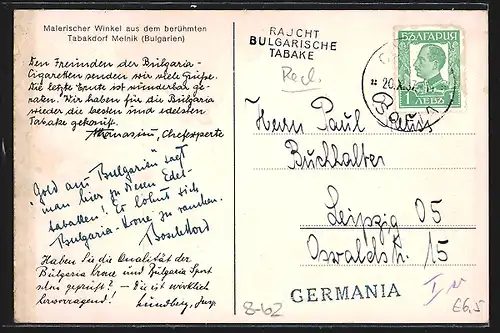 Malerischer Winkel aus dem berühmten
Tabakdorf Melnik (Bulgarien)
Den Freunden der Bulgaria-
Cigaretten senden wir viele Grüße.
Die letzte Ernte ist wunderbar ge-
raten. Wir haben für die Bulgaria
wieder die besten und edelsten
Tabake gekauft.
Athanasiu, Chefexperte
"Gold aus Bulgarien" sagt
man hier zu diesen Edel-
tabaken! Es lohnt sich
Bulgaria-Krone zu rauchen.
Haben Sie die Qualität der
Bulgaria Krone und Bulgaria Sport
schon geprüft? – Die ist wirklich
hervorragend!
Lundberg, Insp.
RAUCHT
BULGARISCHE
TABAKE
Recl.
БЪЛГАРИЯ
1 ЛЕВЪ 1
20.X.3
Herrn Paul
Buchhalter
Leipzig O5
Oswaldstr. 15
GERMANIA
8-62
E6,5